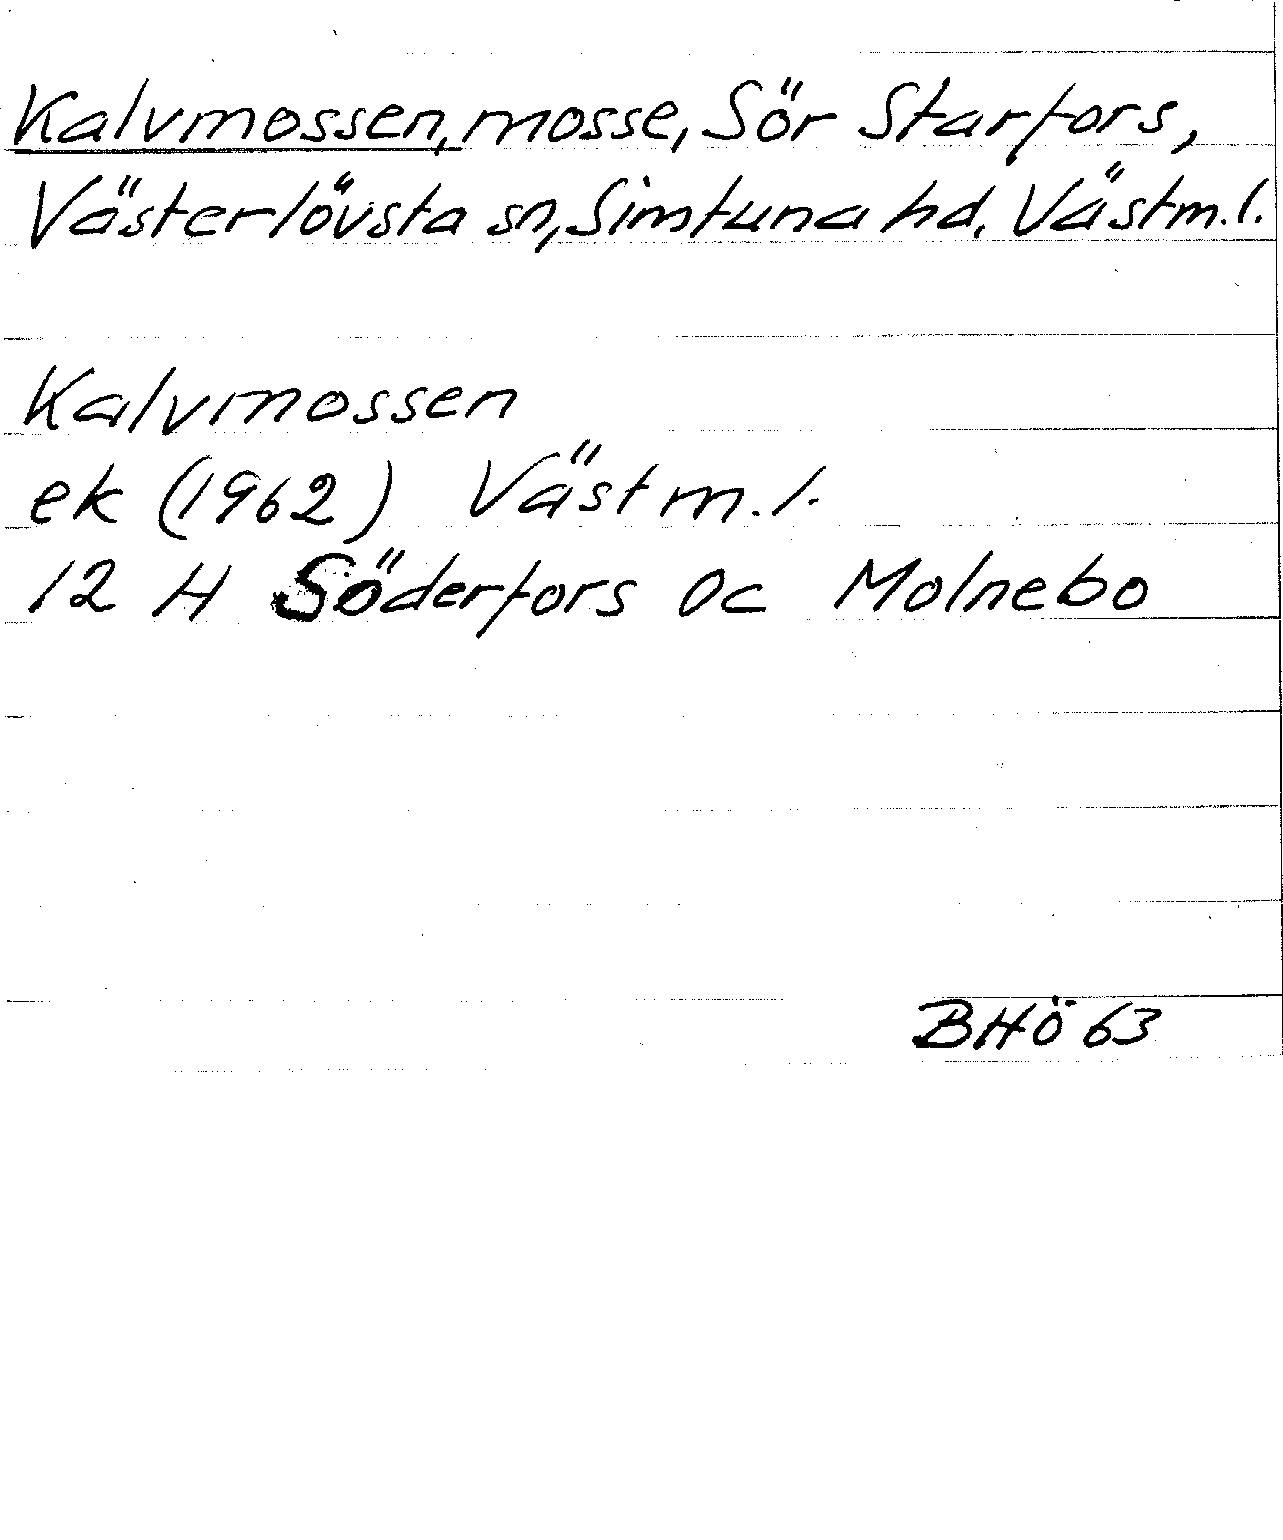 Kalvmossen, mosse, Sör Starfors,
Västerlövsta sn, Simtuna hd. Västm. l.
Kalvmossen
ek (1962) Västm. l.
12 H Söderfors 0c Molnebo
BHÖ 63